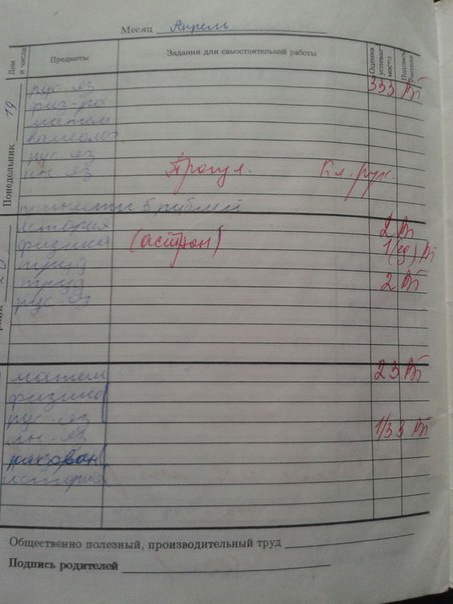 Месяц Апрель
Дни и числа Предметы Задания для самостоятельной работы Оценка успеваемости Подпись учителя
Понедельник 19
рус-яз 333
физ-ра
матем
рус-яз
ин-яз Прогул. Кл. рук.
принести 5 рублей
история 2
физика (астрон) 1(ед)
труд
труд 2
рус-яз
матем 23
физика
рус-яз
ин-яз 1/3 3
рисован
история
Общественно полезный, производительный труд
Подпись родителей